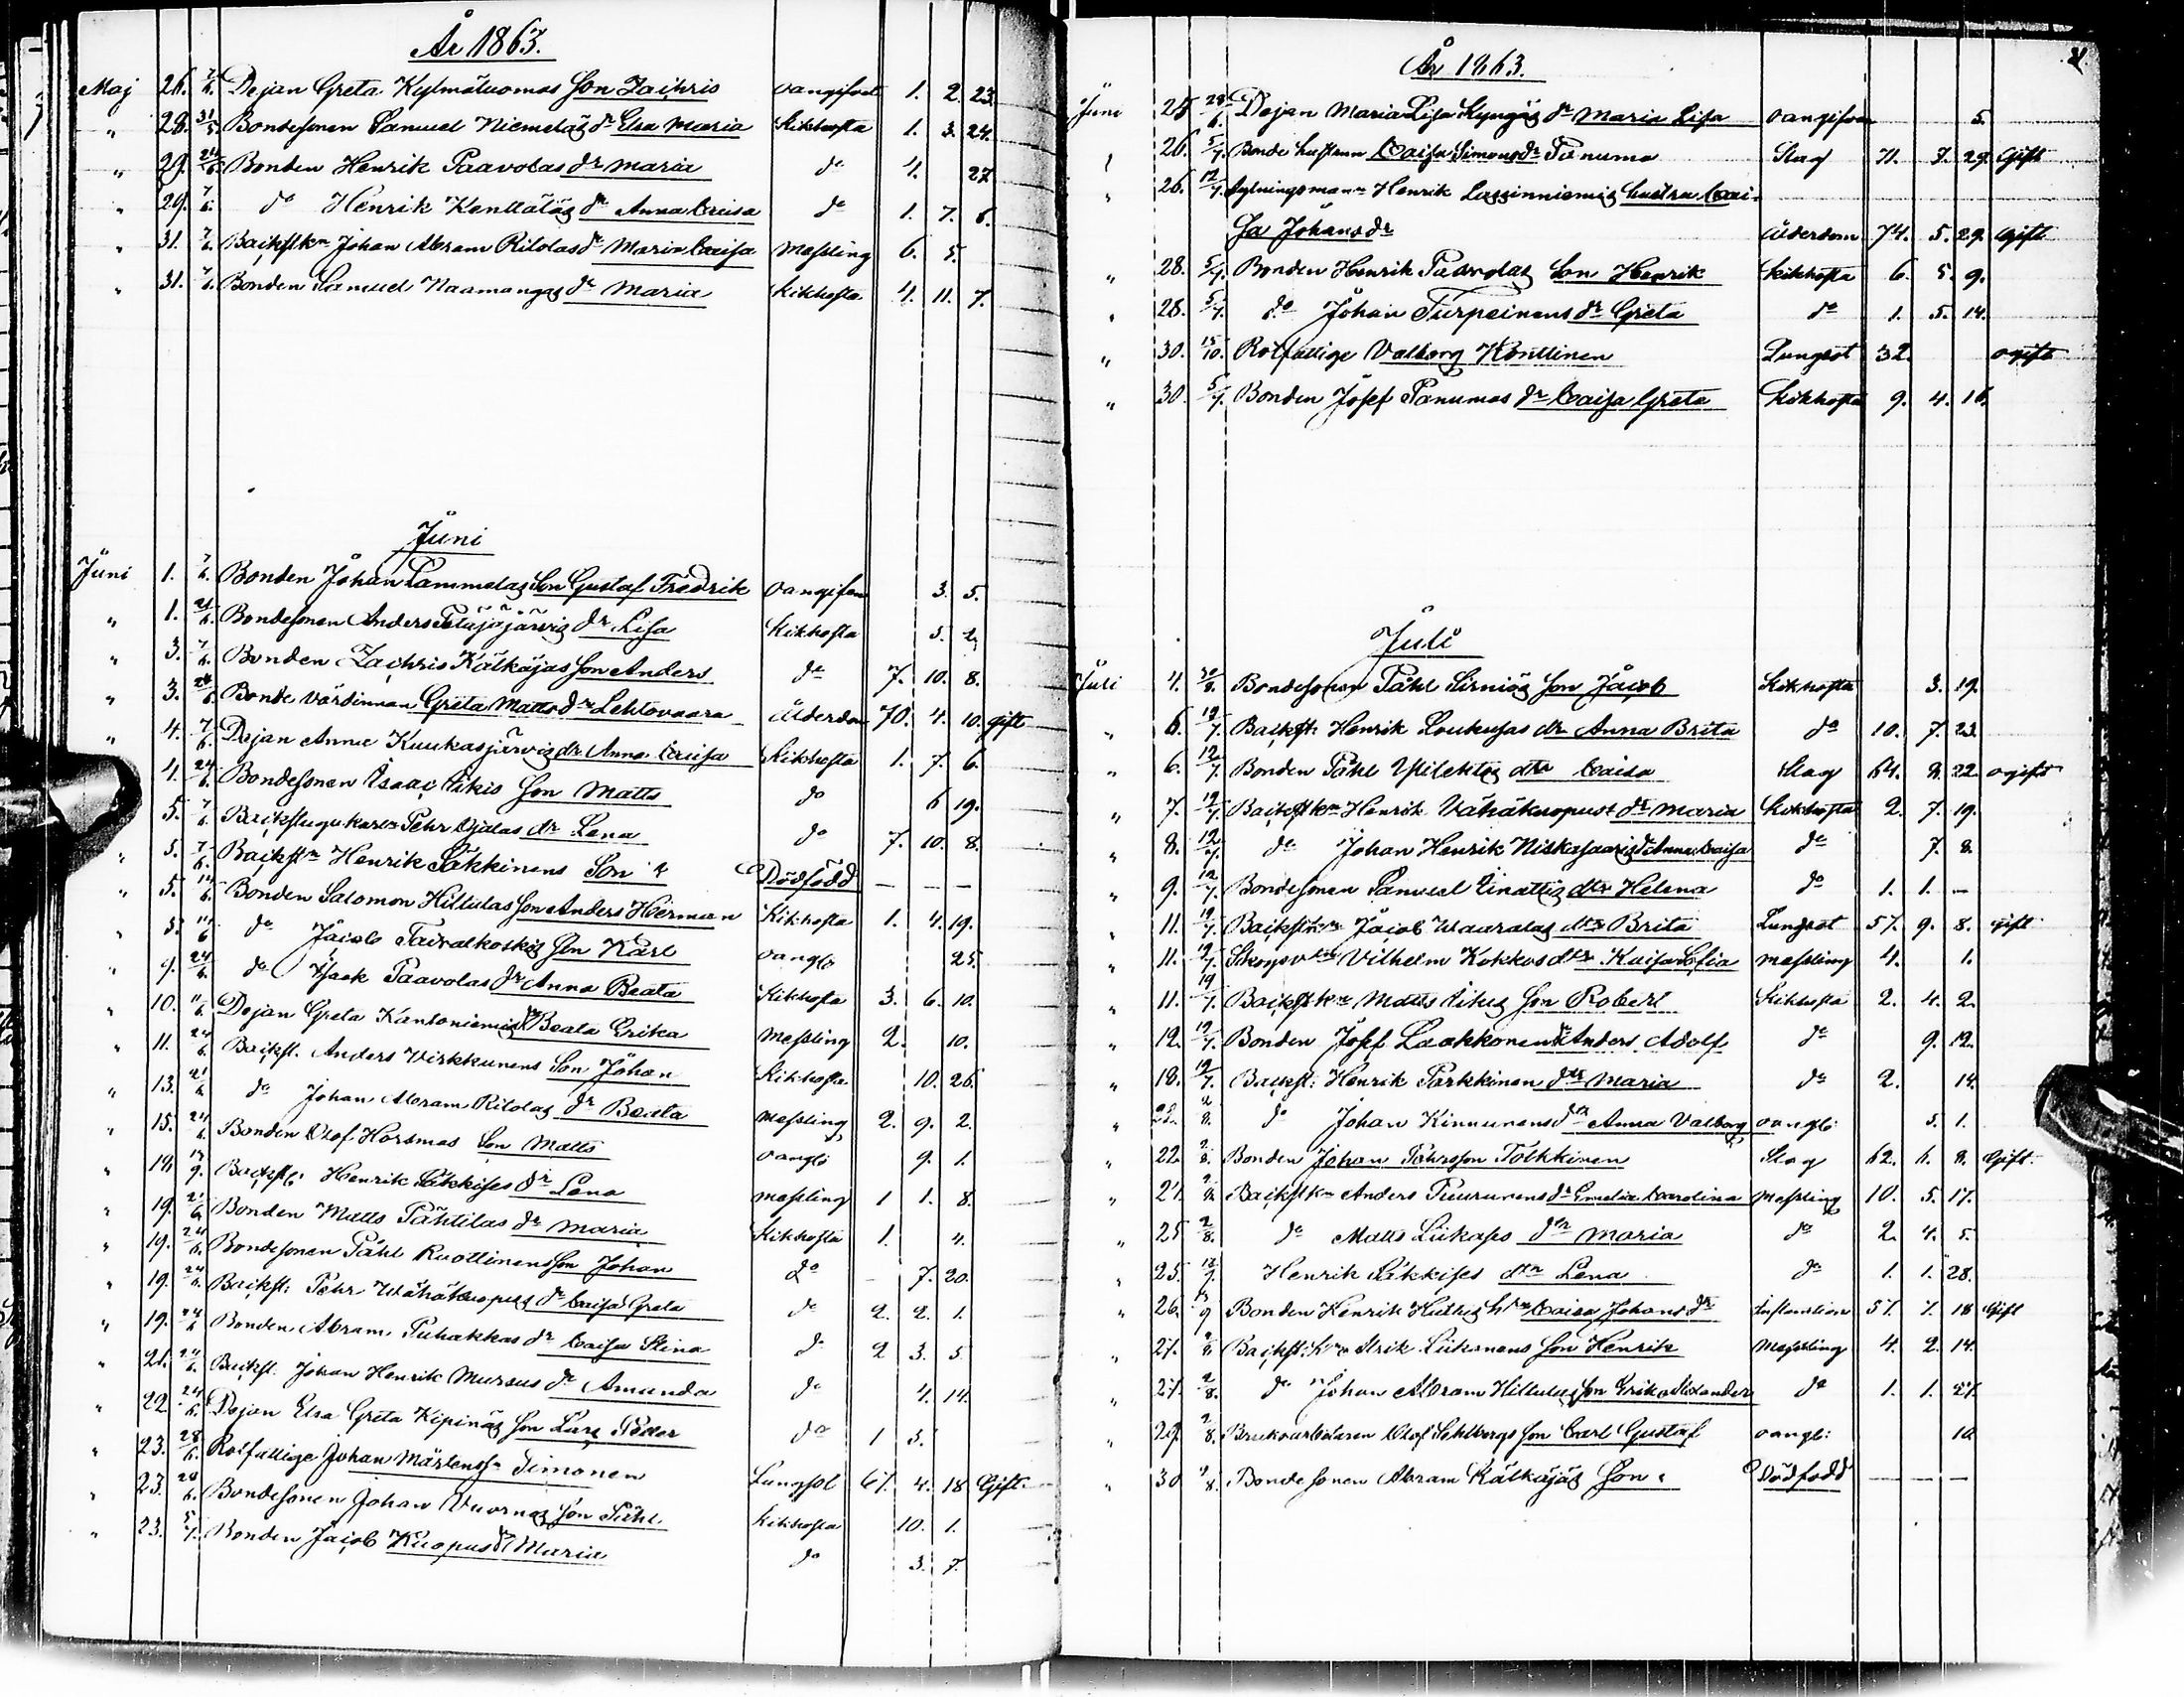 År 1863.
Maj 26. 7/6. Pojan Greta Kylmäluomas Son Zachris oangifvet 1. 2. 23.
" 28. 31/5. Bondesonen Samuel Niemeläs dr Elsa Maria Kikhosta 1. 3. 24.
" 29. 24/6. Bonden Henrik Paavolas dr Maria do 4. 27
" 29. 7/6. do Henrik Kenttäläs dr Anna Caisa do 1. 7. 6.
" 31. 7/6. Backstkn Johan Abram Riiolas dr Maria Caisa Messling 6. 5.
" 31. 7/6. Bonden Samuel Naamangas dr Maria Kikhosta 4. 11. 7.
Juni
Juni 1. 7/6. Bonden Johan Lammelas Son Gustaf Fredrik oangifven 3. 5.
" 1. 21/6. Bondesonen Anders Petäjäjärvis dr Lisa Kikhosta 5.
" 3. 7/6. Bonden Zachris Kälkäjas Son Anders do 7. 10. 8.
" 3. 24/6. Bonde värdinnan Greta Mattsdr Lehtovaara Ålderdom 70. 4. 10. gift
" 4. 7/6. Pojan Anna Kuukasjärvis dr Anna Caisa Kikhosta 1. 7. 6.
4. 24/6. Bondesonen Isaac Likis Son Matts do 6 19.
5. 7/6. Backstugukarln Pehr Ojalas dr Lena do 7. 10. 8.
" 5. 7/6. Backstn Henrik Säkkinens Son Dödfödd — — —
" 5. 14/6. Bonden Salomon Hiltulas Son Anders Herman Kikhosta 1. 4. 19.
" 5. 14/6 do Jacob Taivalkoskis Son Karl oangb 25.
" 9. 24/6. do Isak Paavolas dr Anna Beata Kikhosta 3. 6. 10.
" 10. 11/6. Pojan Greta Kantoniemis dr Beata Erika Messling 2. 10.
" 11. 24/6. Backst. Anders Virkkunens Son Johan Kikhosta 10. 26.
" 13. 21/6. do Johan Abram Riiolas dr Beata Messling 2. 9. 2.
" 15. 24/6. Bonden Olof Horsmas Son Matts oangb 9. 1.
" 18. 13/9. Backst: Henrik Säkkises dr Lena Messling 1 1. 8.
" 19. 21/6. Bonden Matts Pähtilas dr Maria Kikhosta 1. 4.
" 19. 24/6. Bondesonen Påhl Ruottinens Son Johan do 7. 20.
" 19. 24/6. Backst: Pehr Wähäkuopus dr Caisa Greta do 2. 2. 1.
" 19. 24/6 Bonden Abram Puhakkas dr Caisa Stina do 2 3. 5
" 21. 24/6. Backst. Johan Henrik Mursus dr Amanda do 4. 14.
" 22. 24/6. Pojan Elsa Greta Kipinäs Son Lars Petter do 1 3.
" 23. 28/6. Rotfattige Johan Mårtenss. Simonen Lungsot 67. 4. 18 Gift.
" 23. 28/6. Bondesonen Johan Vuornas Son Påhl Kikhosta 10. 1.
" 23. 5/7. Bonden Jacob Kuopus dr Maria do 3. 7.
År 1863.
Juni 25 28/6. Pojan Maria Lisa Kyngäs dr Maria Lisa oangifven 5.
26. 5/7. Bonde hustrun Caisa Simonsdr Tanuma Slag 71. 7. 29. Gift
" 26. 12/7. Nylningsmann Henrik Lassinniemis hustru Cai-
sa Johansdr Ålderdom 74. 5. 29. Gift
" 28. 5/7. Bonden Henrik Paavolas Son Henrik Kikhosta 6. 5. 9.
" 28. 5/7. do Johan Turpeinens dr Greta do 1. 5. 14.
" 30. 15/10. Rotfattige Valborg Konttinen Lungsot 32. ogift
" 30. 5/7. Bonden Josef Tanumas dr Caisa Greta Kikhosta 9. 4. 16.
Juli
Juli 4. Bondesonen Påhl Sirniös Son Jacob Kikhosta 3. 19.
" 6. 12/7. Backst: Henrik Loukusas dr Anna Brita do 10. 7. 23.
" 6. 12/7. Bonden Påhl Ylilehtos dtr Caisa Slag 64. 8. 22. ogift
" 7. 12/7. Backstkn Henrik Vähäkuopus dr Maria Kikhosta 2. 7. 19.
" 8. 12/7. do Johan Henrik Niskasaaris dr Anna Caisa do 7. 8.
" 9. 12/7. Bondesonen Samuel Einattis dtr Helena do 1. 1. —
" 11. 19/7. Backstkn Jacob Waaralas dtr Brita Lungsot 57. 9. 8. gift
" 11. 19/7. Skogsvkt Vilhelm Kokkos dtr Kaisa Sofia Messling 4. 1.
" 11. 19/7. Backstkn Matts Likis Son Robert Kikhosta 2. 4. 2.
" 12. 19/7. Bonden Josef Laakkonens Anders Adolf do 9. 12.
" 18. 19/7. Backst: Henrik Parkkinen dtr Maria do 2. 14.
" 22. 2/8. do Johan Kinnunens dtr Anna Valborg oangb: 5. 1.
" 22. 2/8. Bonden Johan Påhrsson Tolkkinen Slag 62. 6. 8. Gift.
" 21. 2/8. Backstkn Anders Tuurunens dr Emelia Carolina Messling 10. 5. 17.
" 25 2/8. do Matts Liikases dtr Maria do 2. 4. 5.
" 25. Henrik Säkkises dtr Lena do 1. 1. 28.
" 26. Bonden Henrik Huttus h Caisa Johansdr Inflamation 57. 7. 18 Gift
" 27. 2/8. Backst: Erik Liikanens Son Henrik Messling 4. 2. 14.
" 27. 2/8. do Johan Abram Hiltulas Son Erik Alexander do 1. 1. 27.
" 29. 2/8. Bruksarbetaren Olof Sehlbergs Son Carl Gustaf oangb: 10.
" 30 /8. Bondesonen Abram Kälkäjäs Son Dödfödd — — —